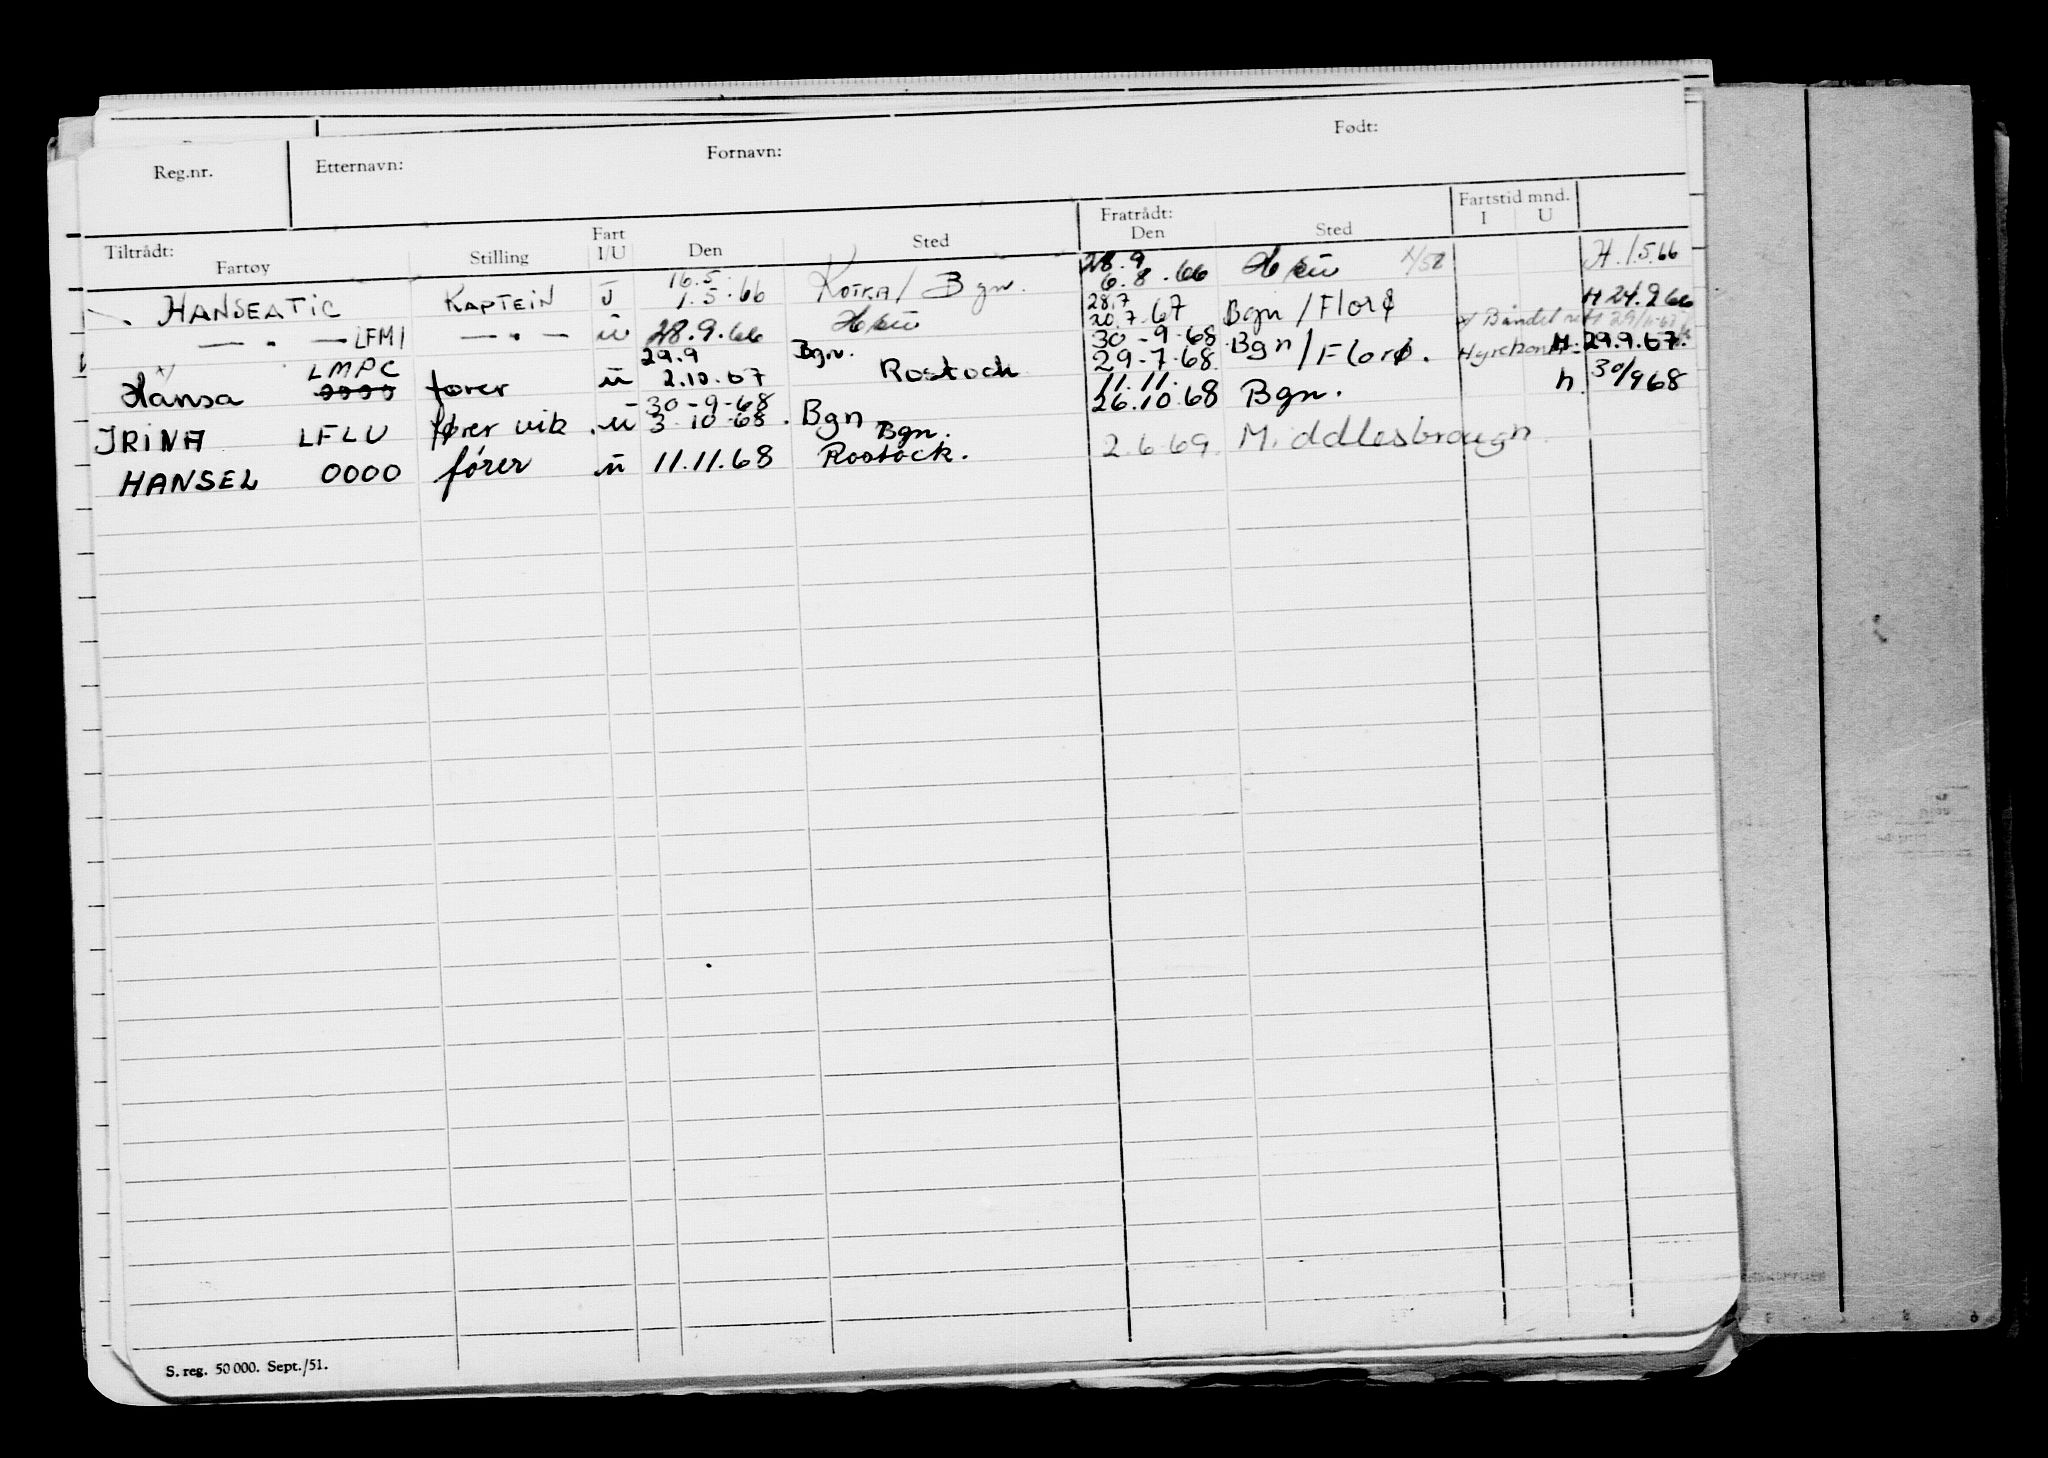 Reg.nr. Etternavn: Fornavn: Født:
Tiltrådt: Fratrådt: Fartstid mnd.
Fartøy Stilling Fart I/U Den Sted Den Sted I U
16.5 28.9
HANSEATIC KAPTEIN U 1.5.66 KOTKA / Bgn. 6.8.66 H. 1.5.66
28.7 H 24.9.66
— " — LFMI — " — u 28.9.66 20.7.67 Bgn / Florø
LMPC 29.9 Bgn. 30-9-68
x/ Hansa fører u 2.10.67 Rostock 29-7-68 Bgn / Florø. H. 29.9.67.
30-9-68 11.11.
IRINA LFLU fører vik. u 3.10.68. Bgn 26.10.68 Bgn. h. 30/9 68
Bgn.
HANSEL OOOO fører u 11.11.68 Rostock. 2.6.69. Middlesbrough
S. reg. 50 000. Sept./51.